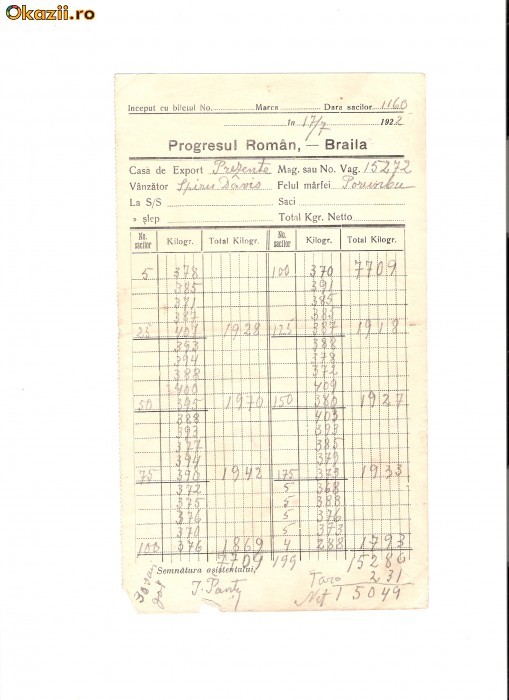 Okazii.ro
Inceput cu biletul No. Marca Dara sacilor 1160
în 17/7 1922
Progresul Român, — Braila
Casa de Export Prezente Mag. sau No. Vag. 15272
Vânzător Spiru Felul mărfei Porumbu
La S/S Saci
» șlep Total Kgr. Netto
No. sacilor Kilogr. Total Kilogr. No. sacilor Kilogr. Total Kilogr.
5 378 100 370 7709
385 391
371 385
387 385
25 407 1928 125 387 1918
393 388
394 378
388 372
400 409
50 395 1970 150 380 1927
388 403
393 393
377 385
394 379
75 390 1942 175 373 1933
372 5 368
375 5 388
376 5 376
370 5 373
100 376 1869 4 288 1793
7709 199 15280
Semnătura asistentului, Tara 231
Net 15049